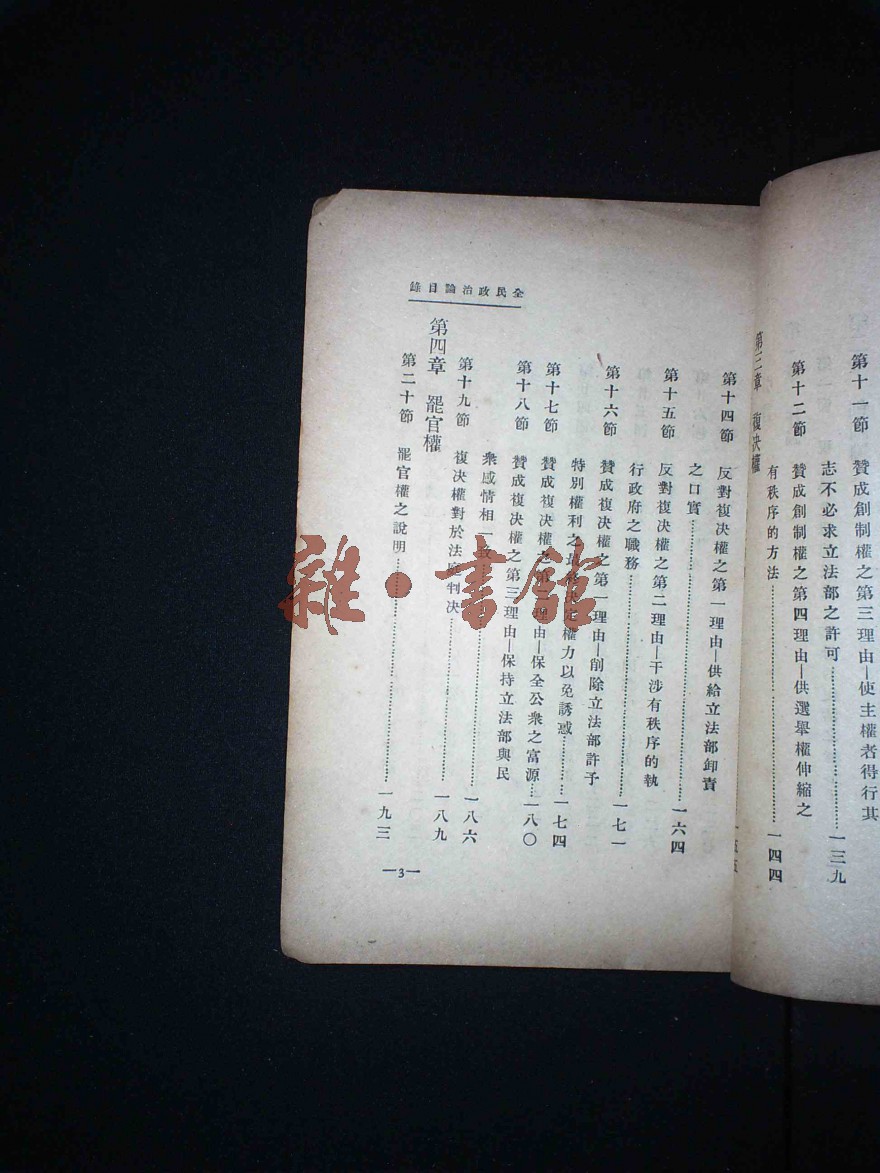 第十一節 贊成創制權之第三理由—使主權者得行其
志不必求立法部之許可…………一三九
第十二節 贊成創制權之第四理由—供選舉權伸縮之
有秩序的方法…………一四四
第三章 複決權
一五五
全民政治論目錄
第十四節 反對複決權之第一理由—供給立法部卸責
之口實…………一六四
第十五節 反對複決權之第二理由—干涉有秩序的執
行政府之職務…………一七一
第十六節 贊成複決權之第一理由—削除立法部許予
特別權利之最 權力以免誘惑……一七四
第十七節 贊成複決權之第二理由—保全公衆之富源…一八〇
第十八節 贊成複決權之第三理由—保持立法部與民
衆感情相一致…………一八六
第十九節 複決權對於法庭判决…………一八九
第四章 罷官權
第二十節 罷官權之說明…………一九三
—3—
雜·書館